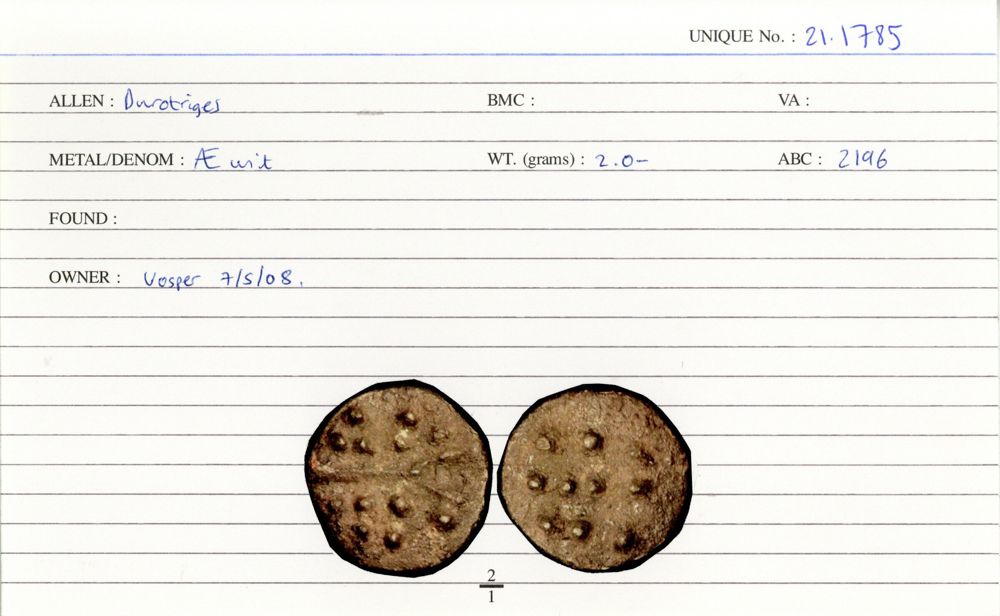 UNIQUE No. : 21.1785
ALLEN : Durotriges BMC : VA :
METAL/DENOM : Æ unit WT. (grams) : 2.0- ABC : 2196
FOUND :
OWNER : Vosper 7/5/08.
2
1